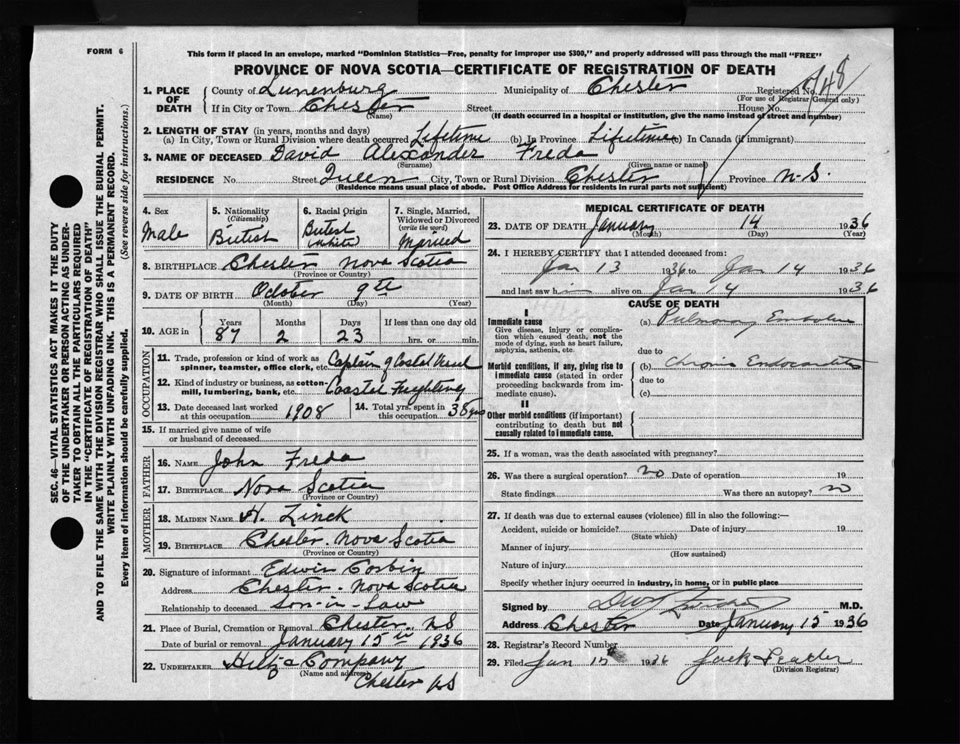 FORM 6
This form if placed in an envelope, marked "Dominion Statistics—Free, penalty for improper use $300," and properly addressed will pass through the mail "FREE"
PROVINCE OF NOVA SCOTIA—CERTIFICATE OF REGISTRATION OF DEATH
1. PLACE OF DEATH County of Lunenburg Municipality of Chester Registered No. 748
(For use of Registrar General only)
If in City or Town Chester Street House No.
(Name) (If death occurred in a hospital or institution, give the name instead of street and number)
2. LENGTH OF STAY (in years, months and days)
(a) In City, Town or Rural Division where death occurred Lifetime (b) In Province Lifetime (c) In Canada (if immigrant)
3. NAME OF DECEASED David Alexander Freda
(Surname) (Given name or name)
RESIDENCE No. Street Queen City, Town or Rural Division Chester Province N.S.
(Residence means usual place of abode. Post Office Address for residents in rural parts not sufficient)
4. Sex
Male
5. Nationality
(Citizenship)
British
6. Racial Origin
British
(White)
7. Single, Married, Widowed or Divorced
(write the word)
Married
8. BIRTHPLACE Chester Nova Scotia
(Province or Country)
9. DATE OF BIRTH October 9th
(Month) (Day) (Year)
10. AGE in Years Months Days If less than one day old
87 2 23 hrs. or min.
OCCUPATION
11. Trade, profession or kind of work as spinner, teamster, office clerk, etc. Captain of Coastal
12. Kind of industry or business, as cotton-mill, lumbering, bank, etc. Coaster Freighting
13. Date deceased last worked at this occupation 1908
14. Total yrs. spent in this occupation 38 yrs
15. If married give name of wife or husband of deceased
FATHER
16. NAME John Freda
17. BIRTHPLACE Nova Scotia
(Province or Country)
MOTHER
18. MAIDEN NAME H. Zinck
19. BIRTHPLACE Chester. Nova Scotia
(Province or Country)
20. Signature of informant Edwin Corbin
Address Chester Nova Scotia
Relationship to deceased Son-in-Law
21. Place of Burial, Cremation or Removal Chester. NS
Date of burial or removal January 15th 1936
22. UNDERTAKER Company
(Name and address) Chester NS
MEDICAL CERTIFICATE OF DEATH
23. DATE OF DEATH January 14 1936
(Month) (Day) (Year)
24. I HEREBY CERTIFY that I attended deceased from:
Jan 13 1936 to Jan 14 1936
and last saw him alive on Jan 14 1936
CAUSE OF DEATH
I
Immediate cause
Give disease, injury or complication which caused death, not the mode of dying, such as heart failure, asphyxia, asthenia, etc.
(a) Pulmonary Embolus
due to
Morbid conditions, if any, giving rise to immediate cause (stated in order proceeding backwards from immediate cause).
(b) Chronic Endocarditis
due to
(c)
II
Other morbid conditions (if important) contributing to death but not causally related to immediate cause.
25. If a woman, was the death associated with pregnancy?
26. Was there a surgical operation? no Date of operation 19
State findings Was there an autopsy? no
27. If death was due to external causes (violence) fill in also the following:—
Accident, suicide or homicide? Date of injury 19
(State which)
Manner of injury
(How sustained)
Nature of injury
Specify whether injury occurred in industry, in home, or in public place
Signed by M.D.
Address Chester Date January 15 1936
28. Registrar's Record Number
29. Filed Jan 15 1936 Jack
(Division Registrar)
SEC. 46—VITAL STATISTICS ACT MAKES IT THE DUTY
OF THE UNDERTAKER OR PERSON ACTING AS UNDER-
TAKER TO OBTAIN ALL THE PARTICULARS REQUIRED
IN THE "CERTIFICATE OF REGISTRATION OF DEATH"
AND TO FILE THE SAME WITH THE DIVISION REGISTRAR WHO SHALL ISSUE THE BURIAL PERMIT.
WRITE PLAINLY WITH UNFADING INK. THIS IS A PERMANENT RECORD.
Every item of information should be carefully supplied. (See reverse side for instructions.)